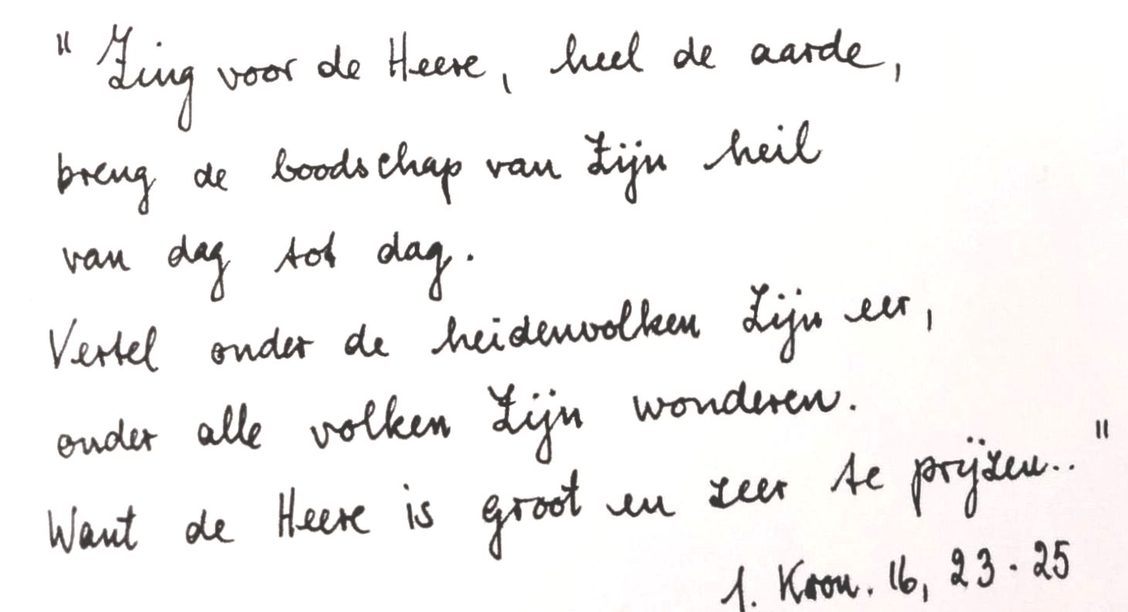 " Zing voor de Heere, heel de aarde,
breng de boodschap van Zijn heil
van dag tot dag.
Vertel onder de heidenvolken Zijn eer,
onder alle volken Zijn wonderen.
Want de Heere is groot en zeer te prijzen.. "
1. Kron. 16, 23-25